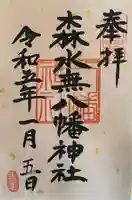 奉拝
大森水無八幡神社
令和五年一月五日